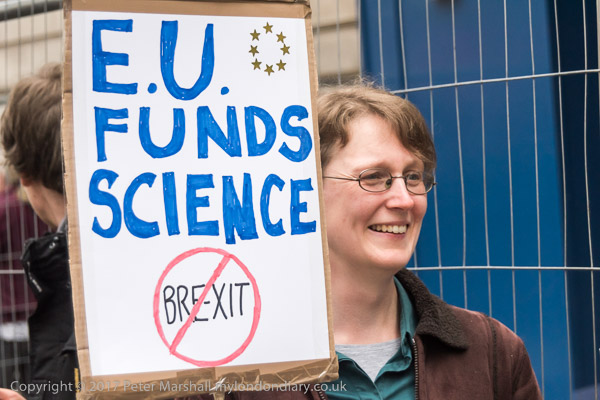 E.U.
FUNDS
SCIENCE
BREXIT
Copyright © 2017 Peter Marshall mylondondiary.co.uk